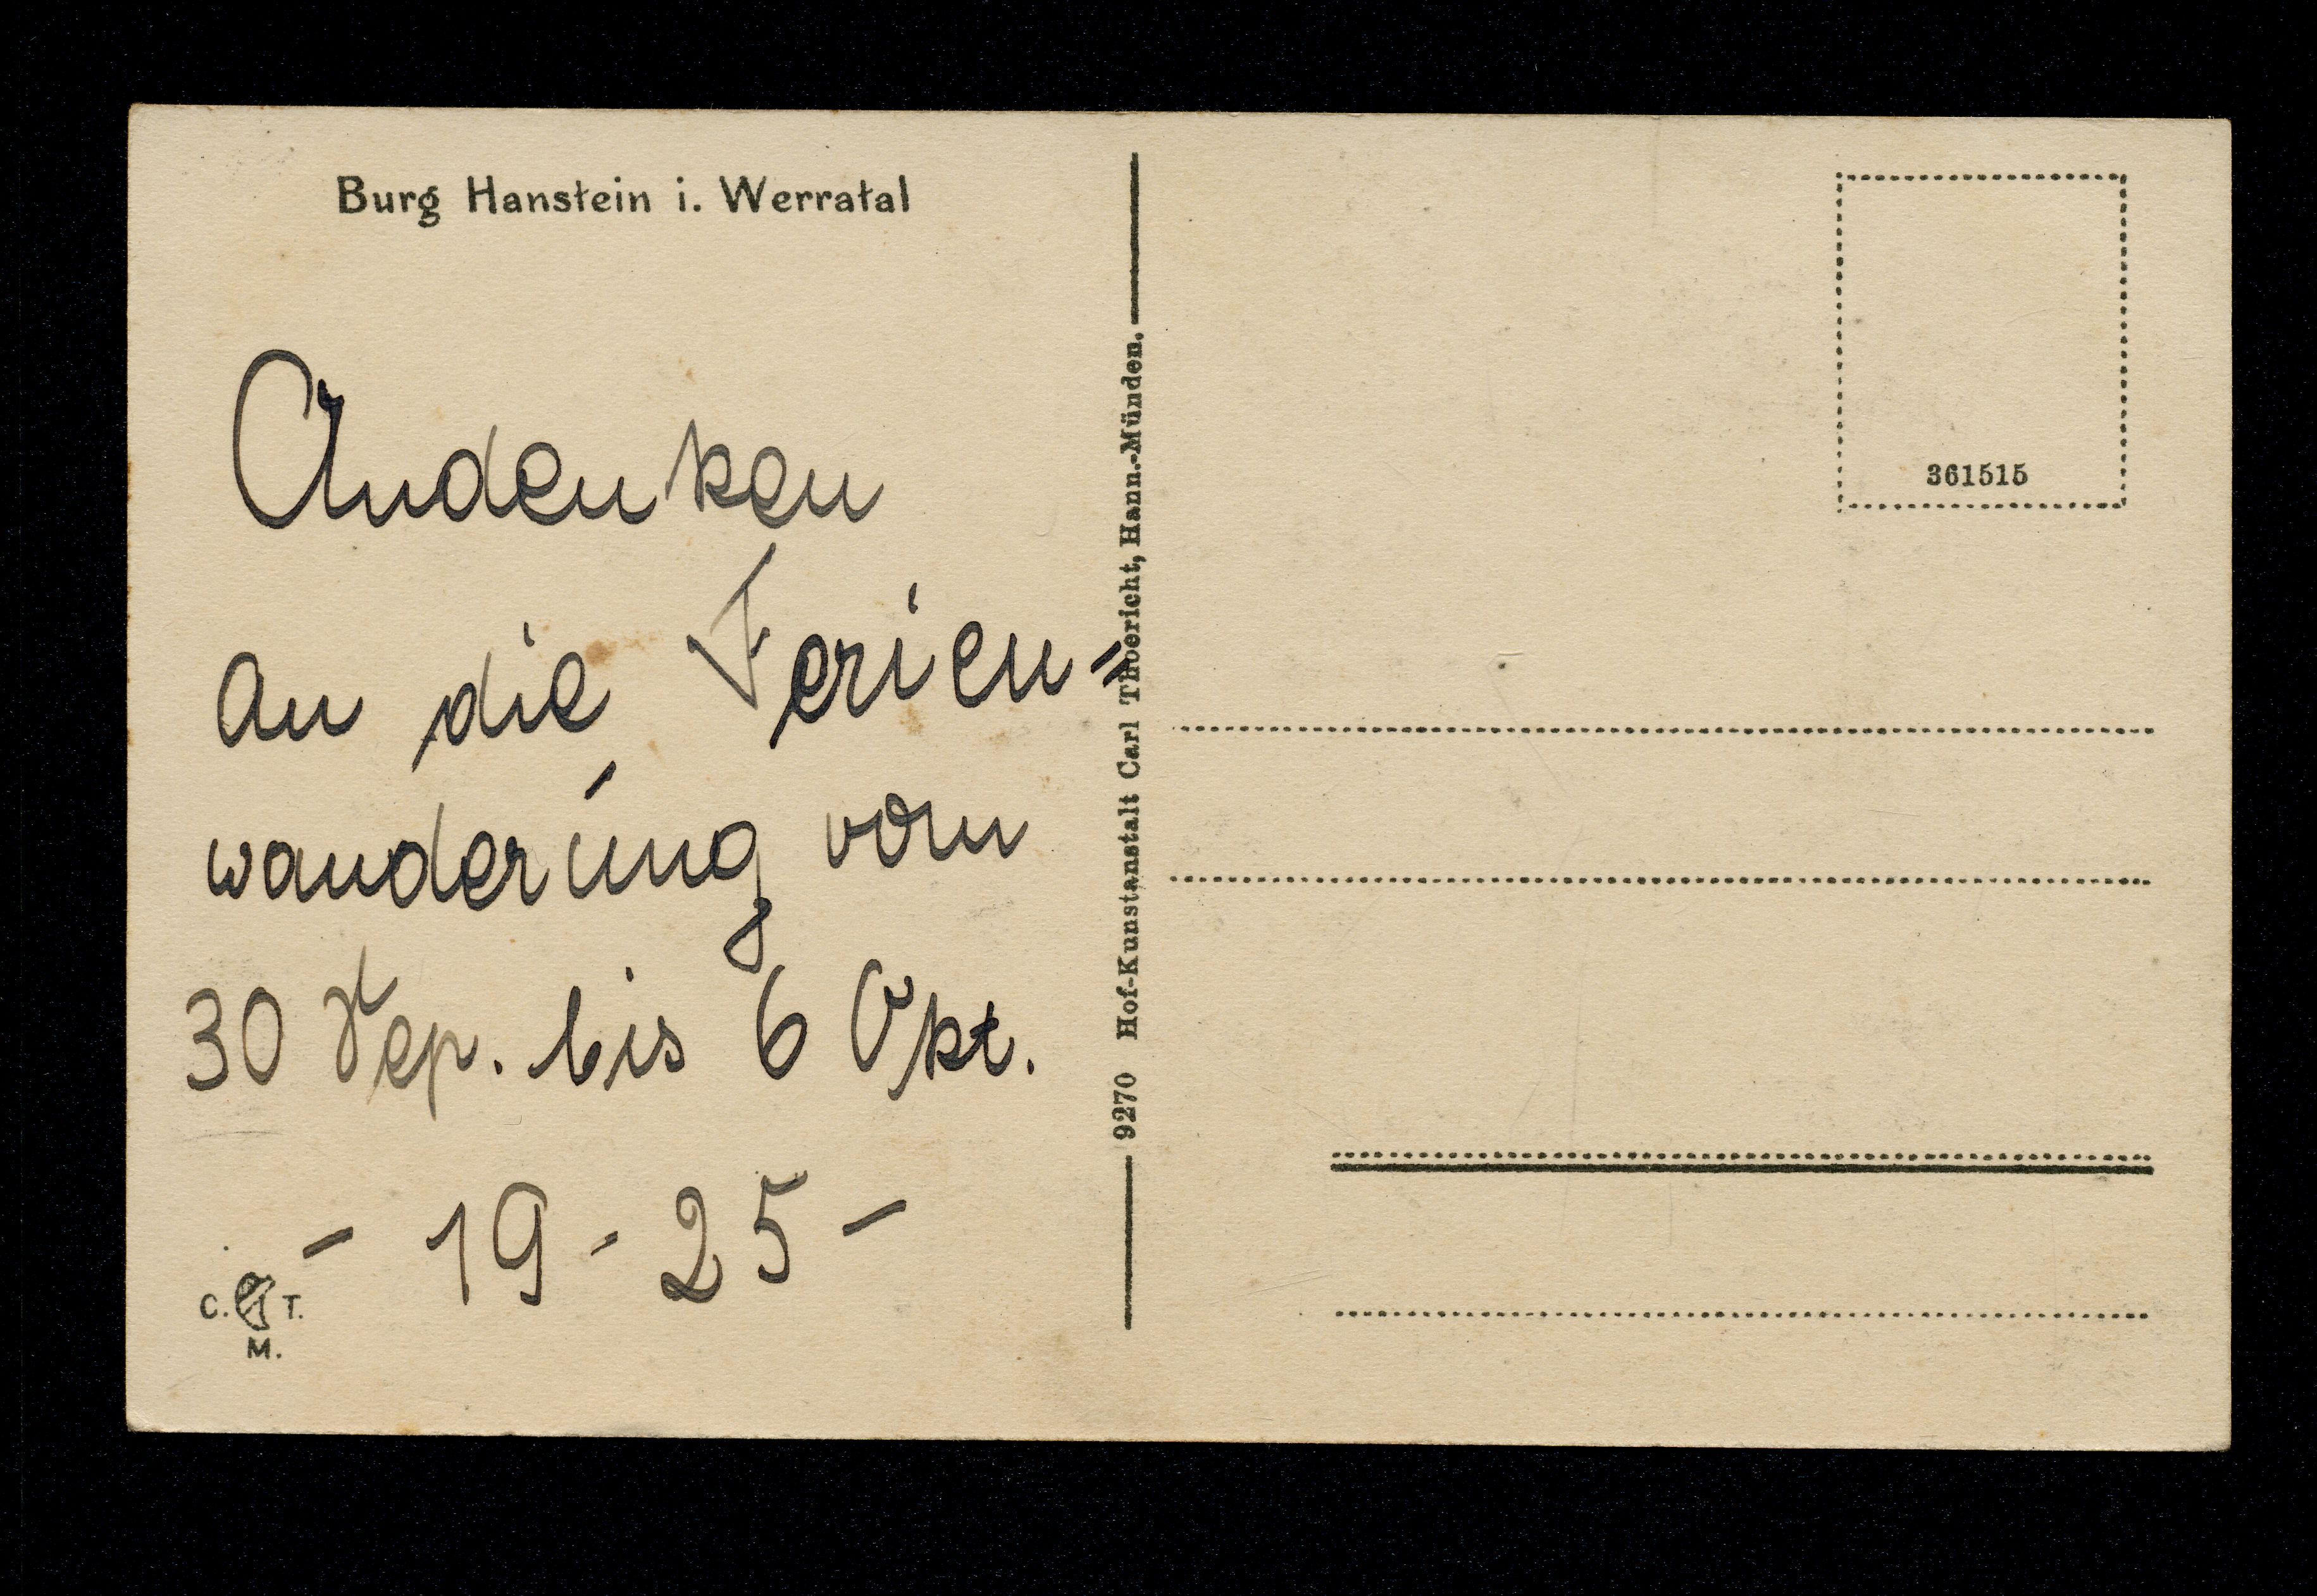 Burg Hanstein i. Werratal
Andenken
an die Ferien=
wanderung vom
30 Sep. bis 6 Okt.
- 19 - 25 -
C. T.
M.
9270 Hof-Kunstanstalt Carl Thoericht, Hann.-Münden.
361515